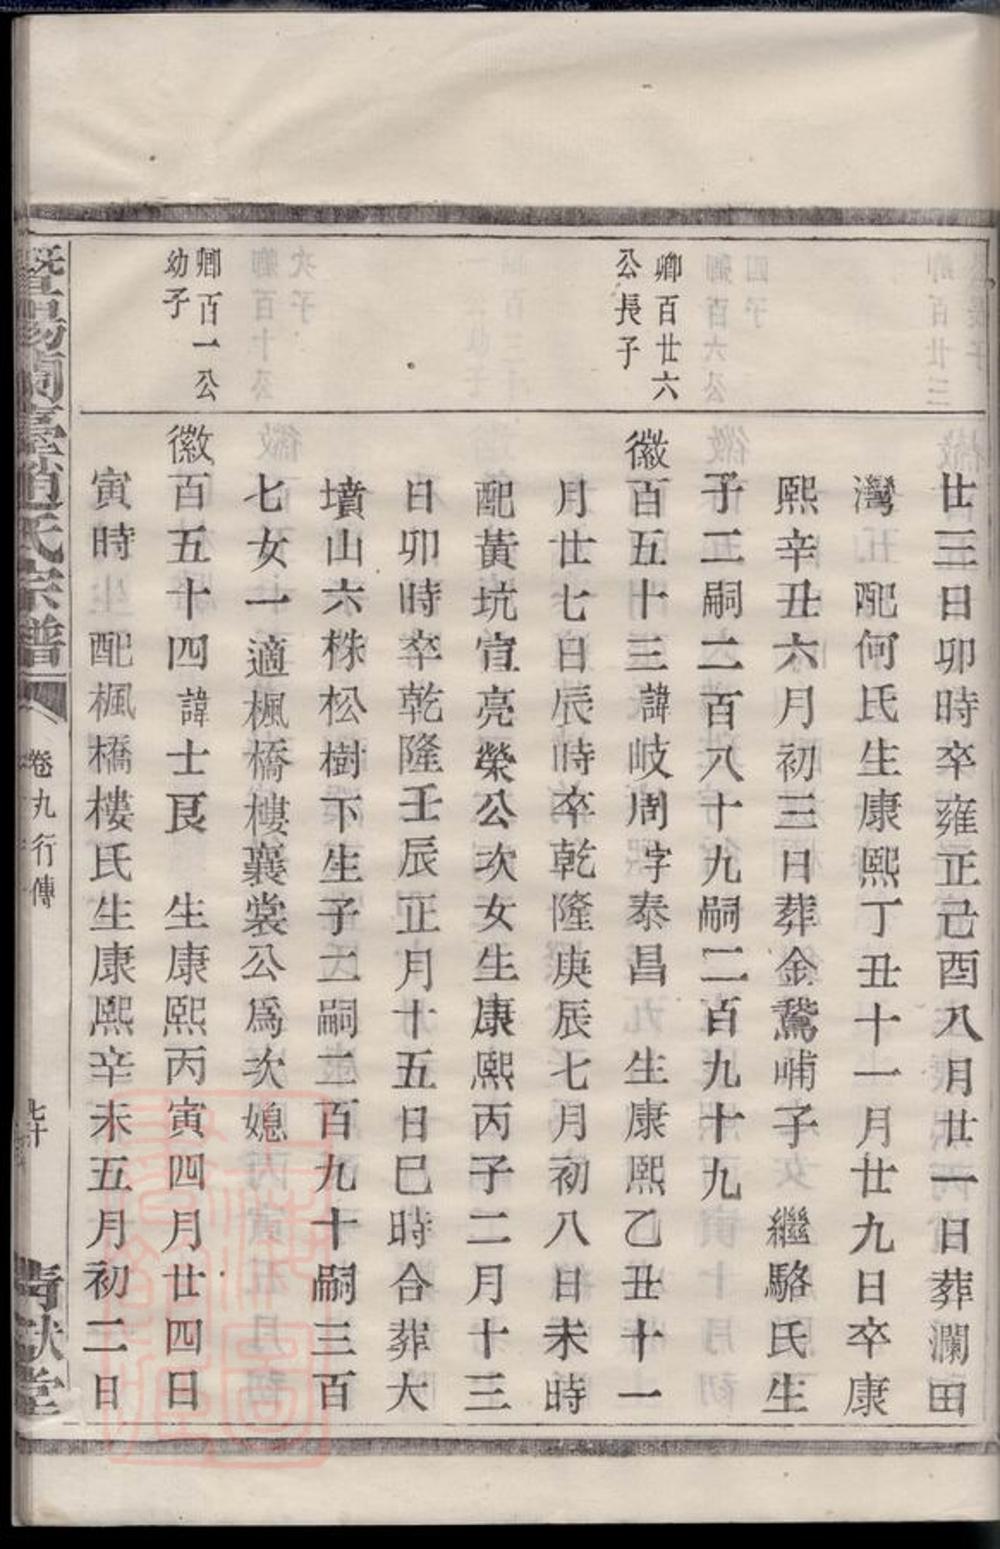 廿三日卯時卒雍正己酉八月廿一日葬瀾田
灣　配何氏生康熙丁丑十一月廿九日卒康
熙辛丑六月初三日葬金鵞哺子　繼駱氏生
子二嗣二百八十九嗣二百九十九
卿百廿六
公長子
徽百五十三諱岐周字泰昌　生康熙乙丑十一
月廿七日辰時卒乾隆庚辰七月初八日未時
配黃坑宣亮榮公次女生康熙丙子二月十三
日卯時卒乾隆壬辰正月十五日巳時合葬大
墳山六株松樹下生子二嗣二百九十嗣三百
七女一適楓橋樓襄裳公爲次媳
卿百一公
幼子
徽百五十四諱士良　生康熙丙寅四月廿四日
寅時　配楓橋樓氏生康熙辛未五月初二日
暨陽蘭臺趙氏宗譜
卷九行傳
七十
清獻堂